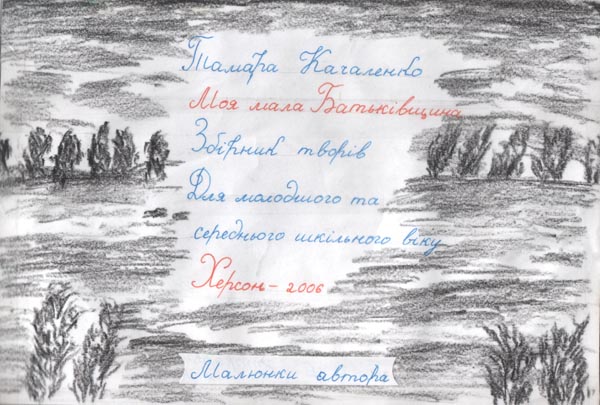 Тамара Качаленко
Моя мала Батьківщина
Збірник творів
Для молодшого та
середнього шкільного віку
Херсон – 2006
Малюнки автора